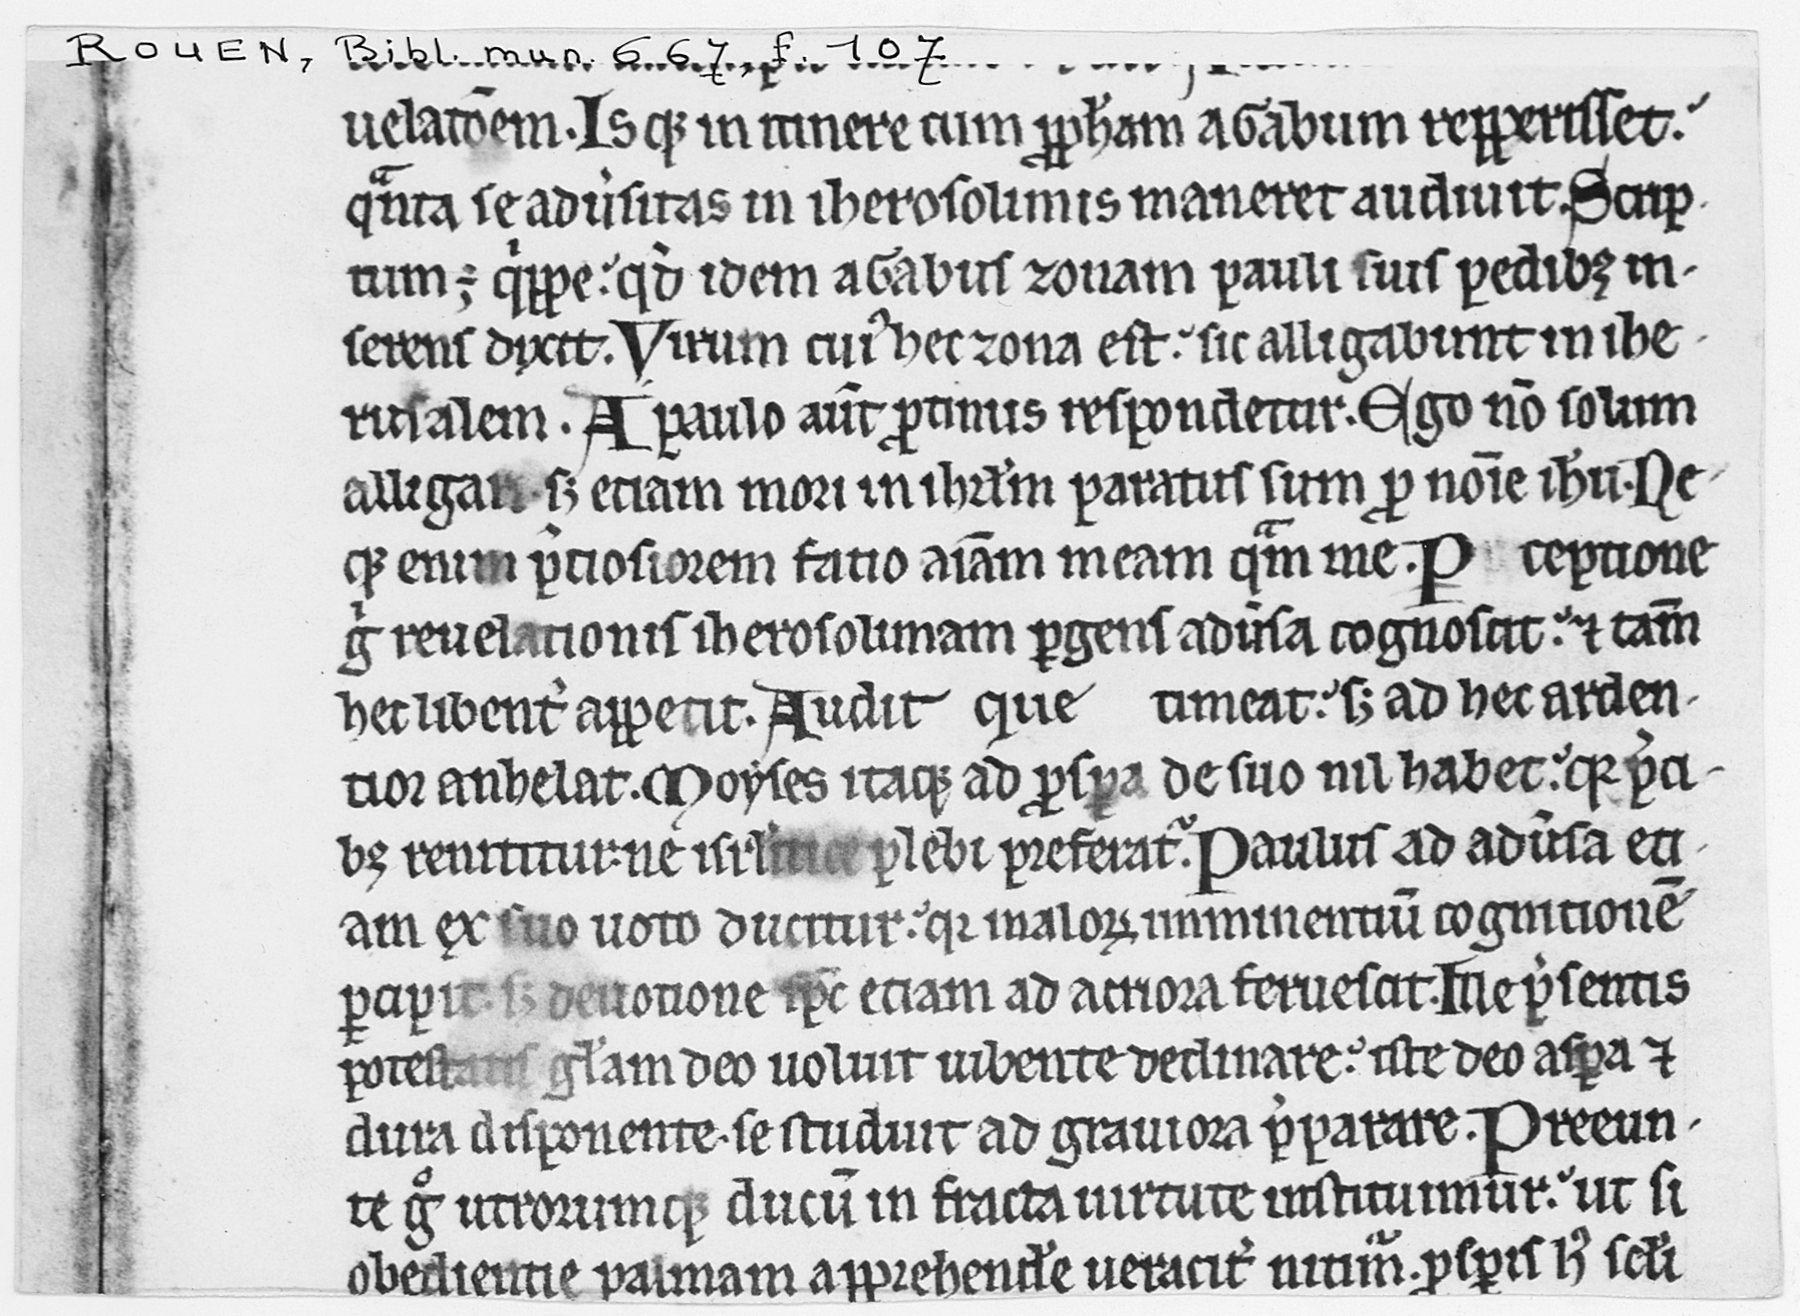 ROUEN, Bibl. mun. 667, f. 107
uelatōem. Is q3 in itinere cum ꝓph̄am agabum repperisset.
qͣnta se adu̓sitas in iherosolimis maneret audiuit. Scrip
tum ÷ qͥppe. qd̓ idem agabus zonam pauli suis pedibꝫ in-
serens dixit. Virum cuiꝰ hec zona est. sic alligabunt in ihe-
rusalem. A paulo aūt ꝓtinus respondetur. Ego nō solum
alligari. sꝫ etiam mori in ihrl̓m paratus sum ꝓ noīe ih̓u. Ne-
qꝫ enim p̓tiosiorem facio aīam meam qͣm me. P ceptione
gͥ reuelationis iherosolimam ꝑgens adu̓sa cognoscit. ⁊ tam̄
hec libent̓ appetit. Audit que timeat. sꝫ ad hec arden-
tior anhelat. Moyses itaqꝫ ad ꝓspa de suo nil habet. qꝛ p̓ci-
bꝫ renititur. ne plebi preferat᷑. Paulus ad adu̓sa eti-
am ex suo uoto ducitur. qꝛ maloꝝ imminentiū cognitionē
ꝑcipit. sꝫ deuotione sp̄c etiam ad acriora feruescit. Ille p̓sentis
potestatis gl̓am deo uoluit iubente declinare. iste deo aspa ⁊
dura disponente. se studuit ad grauiora p̓parare. Preeun-
te gͦ utrorumqꝫ ducū in fracta uirtute instituimur. ut si
obedientie palmam apprehende̓ ueracit̓ nitim̓. ꝓspis hꝰ scl̓i